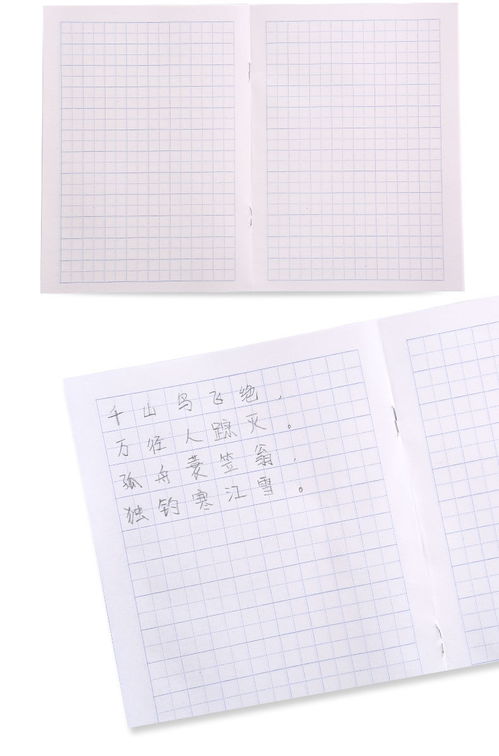 千山鸟飞绝，
万径人踪灭。
孤舟蓑笠翁，
独钓寒江雪。